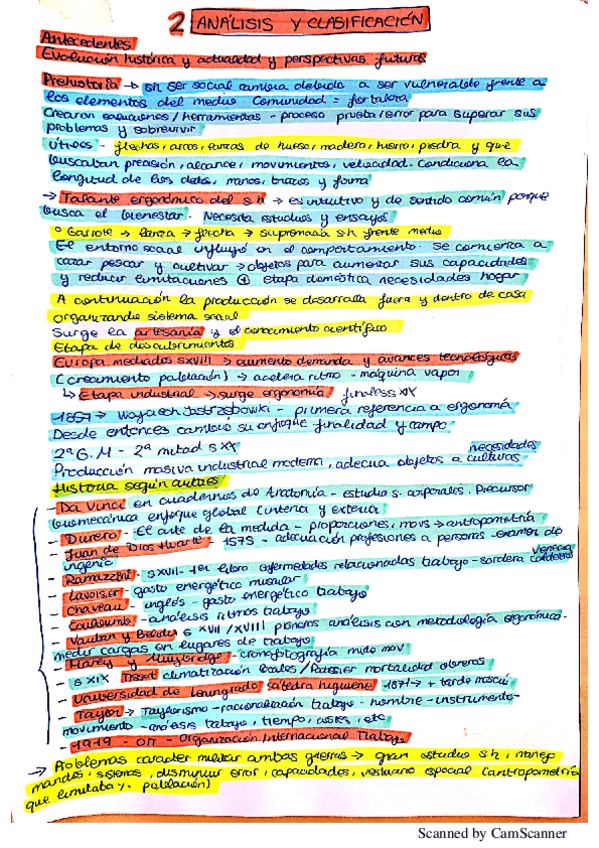 2 ANÁLISIS Y CLASIFICACIÓN
Antecedentes
Evolución histórica y actualidad y perspectivas futuras
Prehistoria → sh ser social cambia debido a ser vulnerable frente a
los elementos del medio Comunidad = fortaleza
Crearon soluciones / herramientas - proceso prueba/error para superar sus
problemas y sobrevivir
Útiles - flechas, arcos, lanzas de hueso, madera, hierro, piedra y que
buscaban precisión, alcance, movimientos, velocidad. Condiciona la
longitud de los dedos, manos, brazos y forma
→ Talante ergonómico del s.h → es intuitivo y de sentido común porque
busca el bienestar. Necesita estudios y ensayos
° Garrote → lanza → flecha → supremacía sh frente medio
El entorno social influyó en el comportamiento. Se comienza a
cazar pescar y cultivar → objetos para aumentar sus capacidades
y reducir limitaciones + etapa doméstica necesidades hogar
A continuación la producción se desarrolla fuera y dentro de casa
organizando sistema social
Surge la artesanía y el conocimiento científico
Etapa de descubrimientos
Europa mediados SXVIII → aumento demanda y avances tecnológicos
(crecimiento población) → acelera ritmo - máquina vapor
↳ Etapa industrial → surge ergonomía finales XIX
1857 → Wojciech Jastrzebowki - primera referencia a ergonomía
Desde entonces cambió su enfoque finalidad y campo
2ª G.M - 2ª mitad s XX
Producción masiva industrial moderna, adecua objetos a necesidades culturas
Historia según autores
- Da Vinci en cuadernos de Anatomía - estudio s. corporales. Precursor
biomecánica enfoque global (interia y exterior
- Durero - El arte de la medida - proporciones, movs → antropometría
- Juan de Dios Huarte - 1575 - adecuación profesiones a personas - examen de
ingenio
- Ramazzini - SXVII - 1er libro enfermedades relacionadas trabajo - sordera caldereros Venecia
- Lavoisier - gasto energético muscular
- Chaveau - inglés - gasto energético trabajo
- Couloumb - análisis ritmos trabajo
- Vauban y Belidor s XVII / XVIII pioneros análisis con metodología ergonómica -
medir cargas en lugares de trabajo
- Marey y Muybridge - cronofotografía mide mov
- s XIX Tissot climatización locales / Patissier mortalidad obreros
- Universidad de Leningrado cátedra higiene 1871 → + tarde Moscú
- Taylor → Taylorismo - racionalización trabajo - hombre - instrumento -
movimiento - análisis trabajo, tiempo, costes, etc
- 1919 - OIT - Organización Internacional Trabajo
→ Problemas carácter militar ambas guerras → gran estudio s.h, manejo
mandos, sistemas, disminuir error, (capacidades, vestuario especial (antropometría
que limitaba y. población)
Scanned by CamScanner